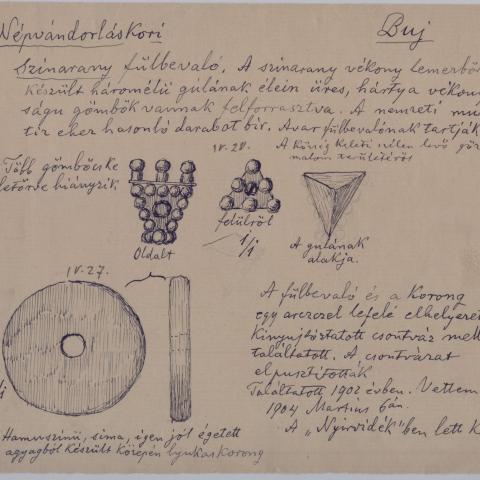 Népvándorláskori
Buj
Színarany fülbevaló. A színarany vékony lemezből
készült háromélű gúlának élein üres, hártya vékony
ságu gömbök vannak felforrasztva. A nemzeti mu
ehez hasonló darabot bir. Avar fülbevalónak tartják
IV. 28.
A község keleti szélen levő
malom
Több gömböcske
letörve hiányzik
Oldalt
felülről
1/1
A gulának
alakja.
IV. 27.
A fülbevaló és a Korong
egy arczczel lefelé elhelyezet
Kinyujtóztatott csontváz mell
találtatott. A csontvázat
elpusztították
Találtatott 1902 évben. Vettem
1904 Martius 6án.
A „Nyirvidék"ben lett K
Hamuszinü, sima, igen jól égetett
agyagból készült közepén lyukas korong